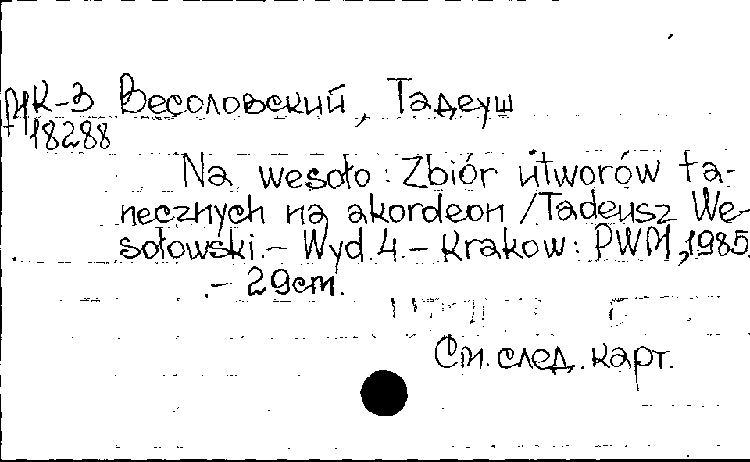 МК-3 Весоловский, Тадеуш
18288
Na wesoło: Zbiór utworów ta-
necznych na akordeon / Tadeusz We-
sołowski. – Wyd. 4. – Krakow: PWM, 1985.
. – 29cm.
См. след. карт.